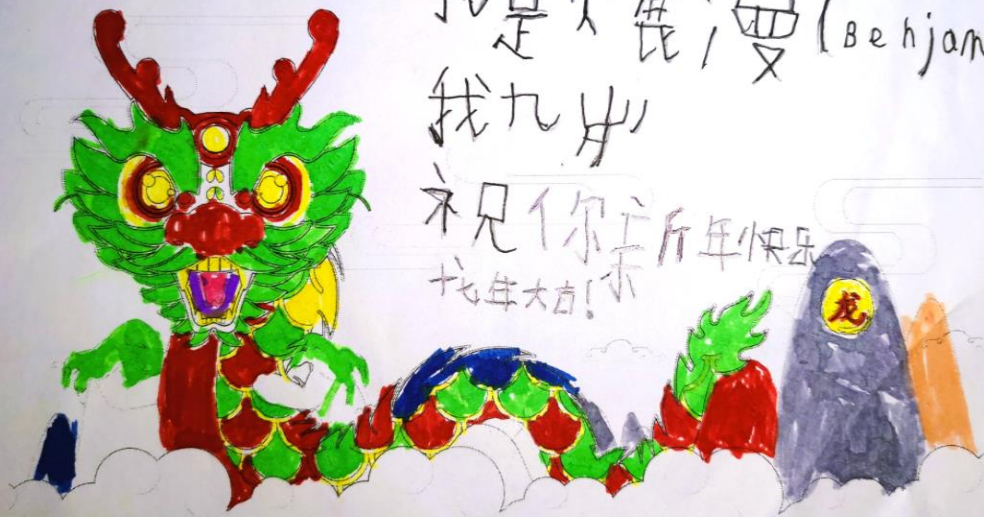 我是 (Benjam
我九岁
祝你新年快乐
龙年大吉!
龙